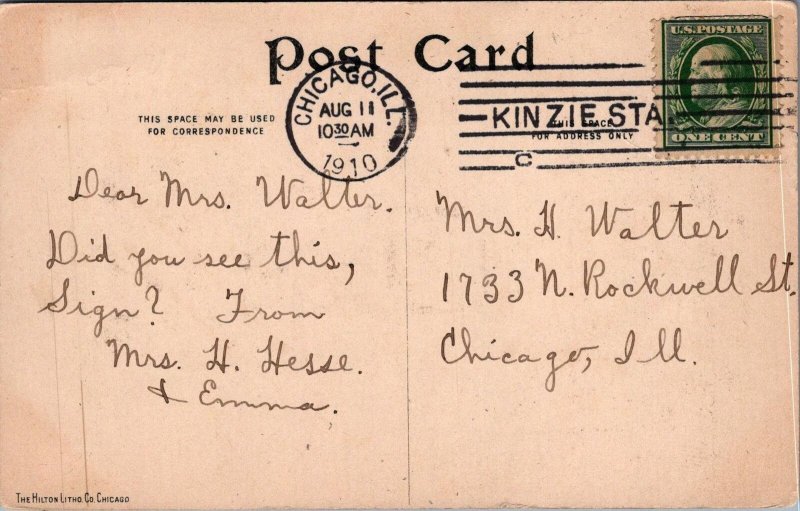 Post Card
U.S. POSTAGE
ONE CENT
CHICAGO, ILL.
AUG 11
10 30 AM
1910
KINZIE STA
C
THIS SPACE MAY BE USED
FOR CORRESPONDENCE
THIS SPACE
FOR ADDRESS ONLY
Dear Mrs. Walter.
Did you see this,
Sign? From
Mrs. H. Hesse.
& Emma.
Mrs. H. Walter
1733 N. Rockwell St.
Chicago, Ill.
THE HILTON LITHO. CO. CHICAGO